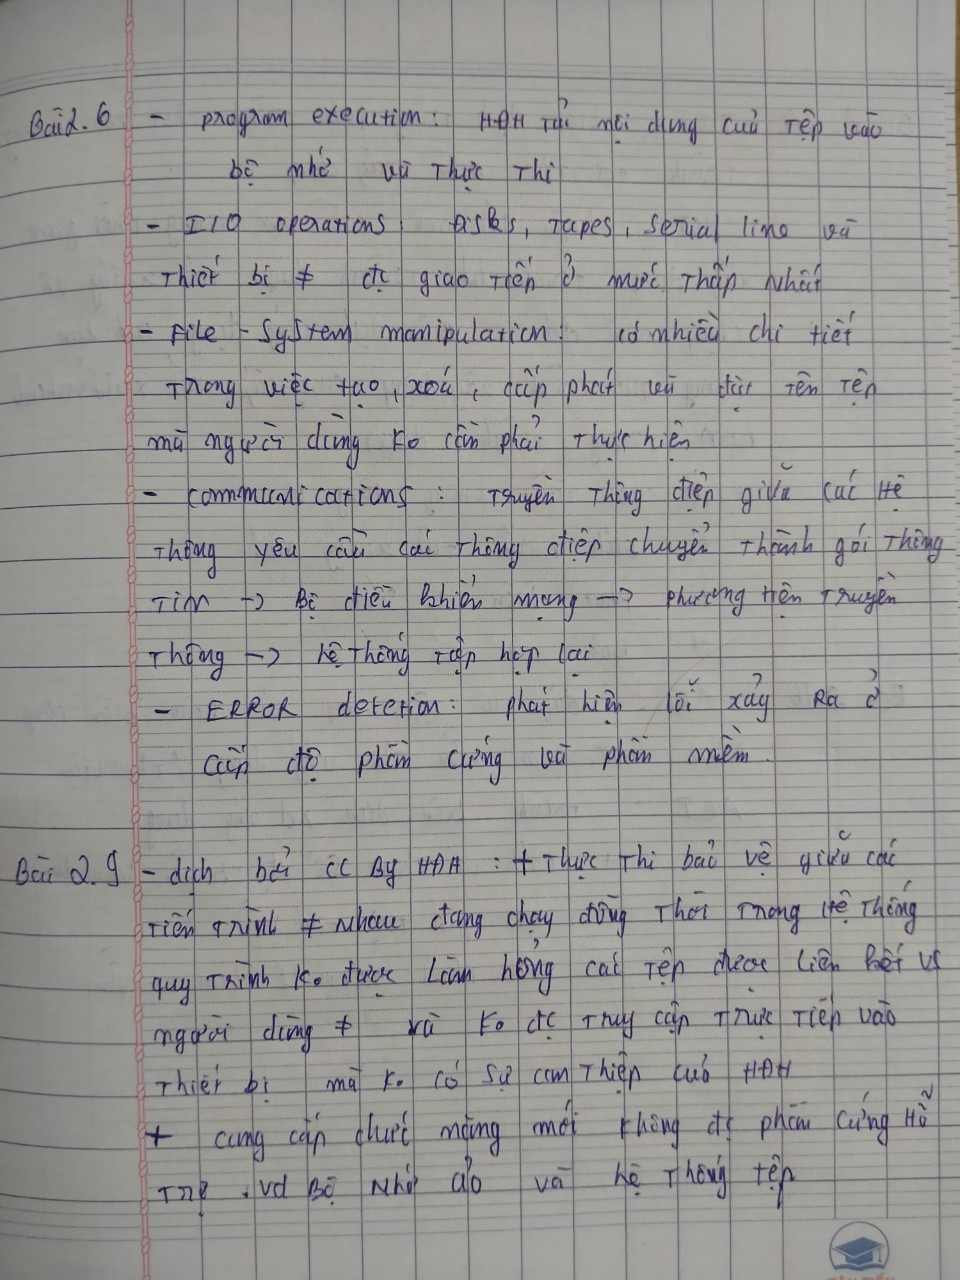 Bài 2.6 - program execution: HĐH tải nội dung của tệp vào
bộ nhớ và thực thi
- I/O operations: Disks, tapes, serial line và
thiết bị ≠ đc giao tiếp ở mức thấp nhất
- File - System manipulation: có nhiều chi tiết
trong việc tạo, xoá, cấp phát và đặt tên tệp
mà người dùng ko cần phải thực hiện
- communications: truyền thông điệp giữa các hệ
thống yêu cầu các thông điệp chuyển thành gói thông
tin -> Bộ điều khiển mạng -> phương tiện truyền
thông -> hệ thống tập hợp lại
- ERROR detetion: phát hiện lỗi xảy ra ở
cấp độ phần cứng và phần mềm.
Bài 2.9 - dịch bởi cc By HĐH: + thực thi bảo vệ giữa các
tiến trình ≠ nhau đang chạy đồng thời trong hệ thống
quy trình ko được làm hỏng các tệp được liên kết vs
người dùng ≠ và ko đc truy cập trực tiếp vào
thiết bị mà ko có sự can thiệp của HĐH
+ cung cấp chức năng mới không đc phần cứng hỗ
trợ. vd Bộ nhớ ảo và hệ thống tệp